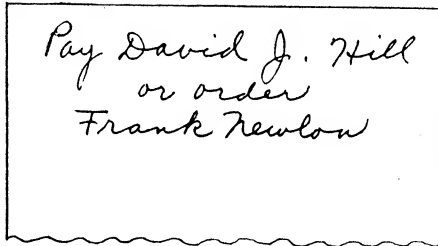 Pay David J. Hill
or order
Frank Newlon